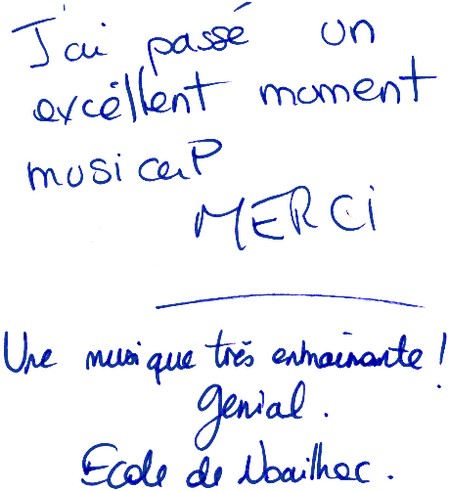 J'ai passé un
excéllent moment
musical
MERCi
Une musique très entrainante !
Génial.
Ecole de Noailhac.